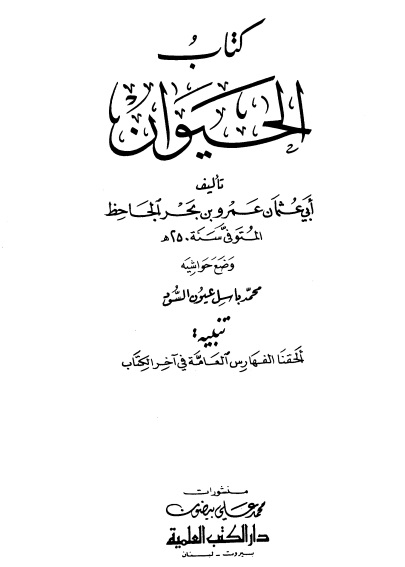 كتاب
الحيوان
تأليف
أبي عثمان عمرو بن بحر الجاحظ
المتوفى سنة ٢٥٠ هـ
وضع حواشيه
محمد باسل عيون السود
تنبيه:
ألحقنا الفهارس العامة في آخر الكتاب
منشورات
محمد علي بيضون
دار الكتب العلمية
بيروت - لبنان